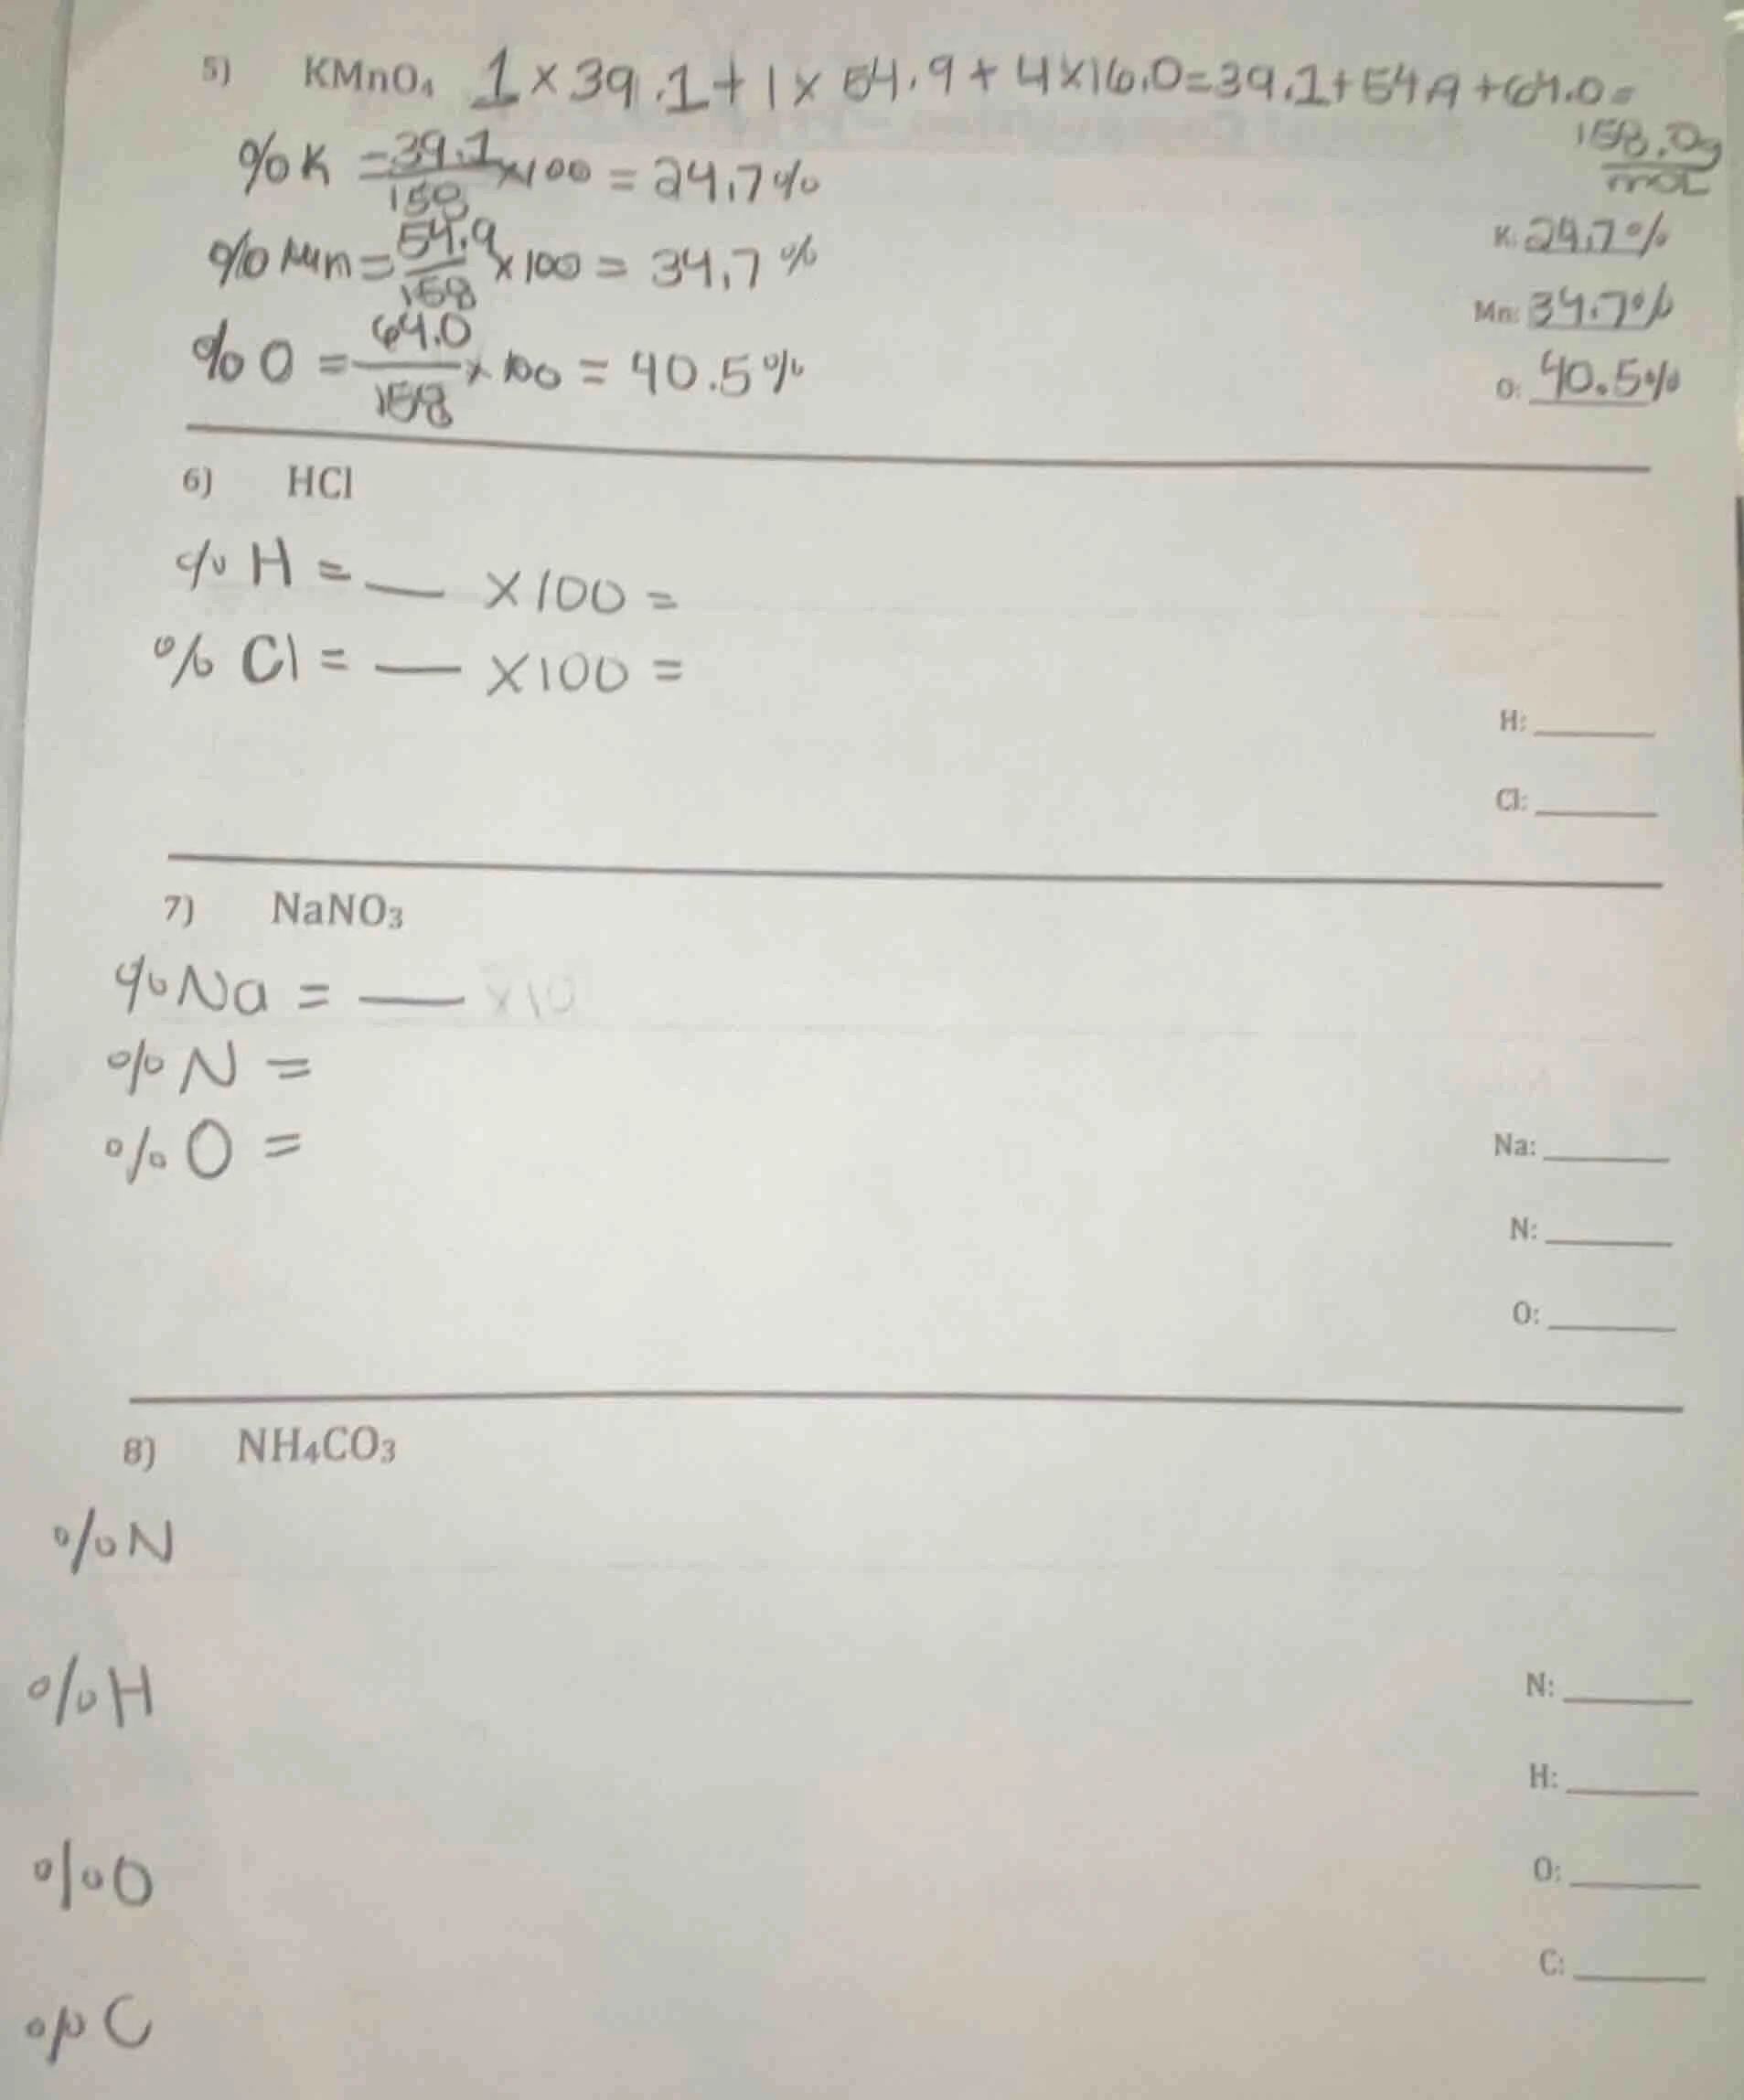 5) KMnO₄ 1 × 39.1 + 1 × 54.9 + 4 × 16.0 = 39.1 + 54.9 + 64.0 =
158.0 g/mol
%K = 39.1/158 × 100 = 24.7%
K: 24.7%
%Mn = 54.9/158 × 100 = 34.7%
Mn: 34.7%
%O = 64.0/158 × 100 = 40.5%
O: 40.5%
6) HCl
%H = __ × 100 =
%Cl = __ × 100 =
H: ____
Cl: ____
7) NaNO₃
%Na = __ ×10
%N =
%O =
Na: ____
N: ____
O: ____
8) NH₄CO₃
%N
%H
N: ____
H: ____
%O
O: ____
C: ____
%C